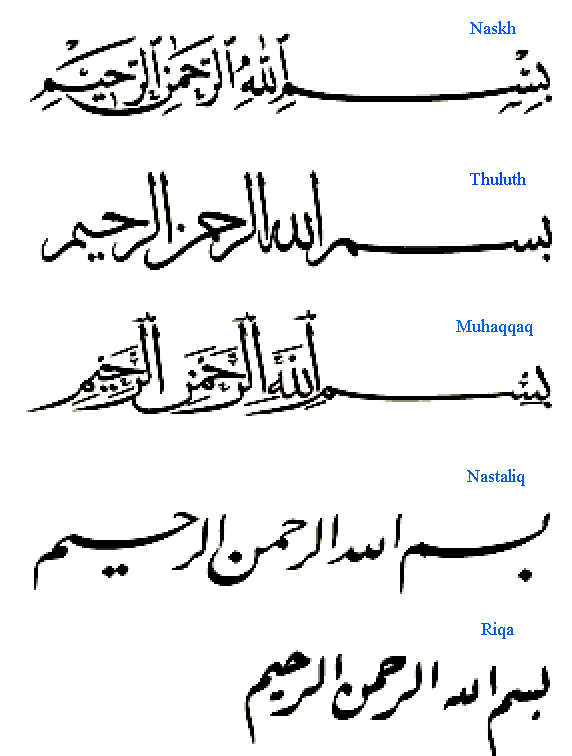 Naskh
بِسْمِ اللهِ الرَّحْمٰنِ الرَّحِيْمِ
Thuluth
بسم الله الرحمن الرحيم
Muhaqqaq
بِسْمِ اللَّهِ الرَّحْمَنِ الرَّحِيمِ
Nastaliq
بسم الله الرحمن الرحيم
Riqa
بسم الله الرحمن الرحيم